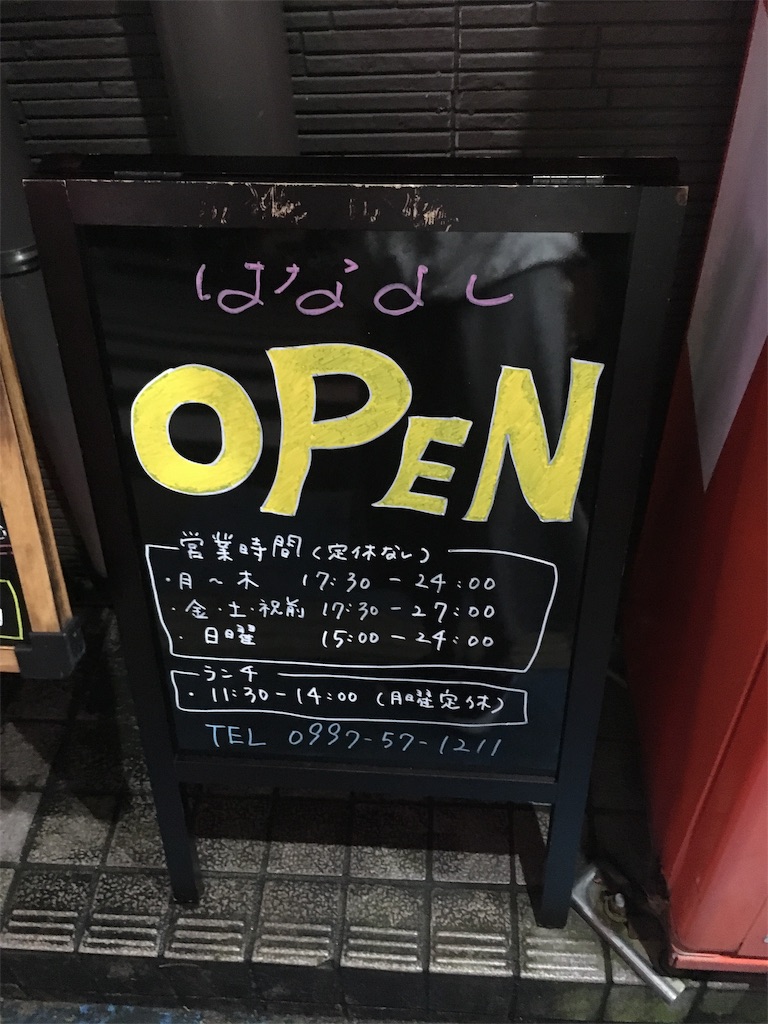 はなよし
OPEN
営業時間（定休なし）
・月～木 17:30-24:00
・金・土・祝前 17:30-27:00
・日曜 15:00-24:00
ランチ
・11:30-14:00（月曜定休）
TEL 0997-57-1211